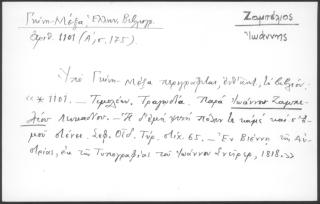 Γκίνη-Μέξα, Ἑλλην. Βιβλιογρ.
ἀριθ. 1101 (Α', σ. 175).
Ζαμπέλιος
Ἰωάννης
Ὑπὸ Γκίνη-Μέξα περιγράφεται,
«* 1101. — Τιμολέων, Τραγῳδία. Παρὰ Ἰωάννου Ζαμπε-
λίου Λευκαδίου. — Ἡ δ' ἐμὴ ψυχὴ πόλιν τε κἀμὲ καὶ σ' ὁ-
μοῦ στένει. Σοφ. Οἰδ. Τύρ. στίχ. 65. — Ἐν Βιέννῃ τῆς Αὐ-
στρίας, ἐκ τῆς Τυπογραφίας τοῦ Ἰωάννου Σνείρερ, 1818.»